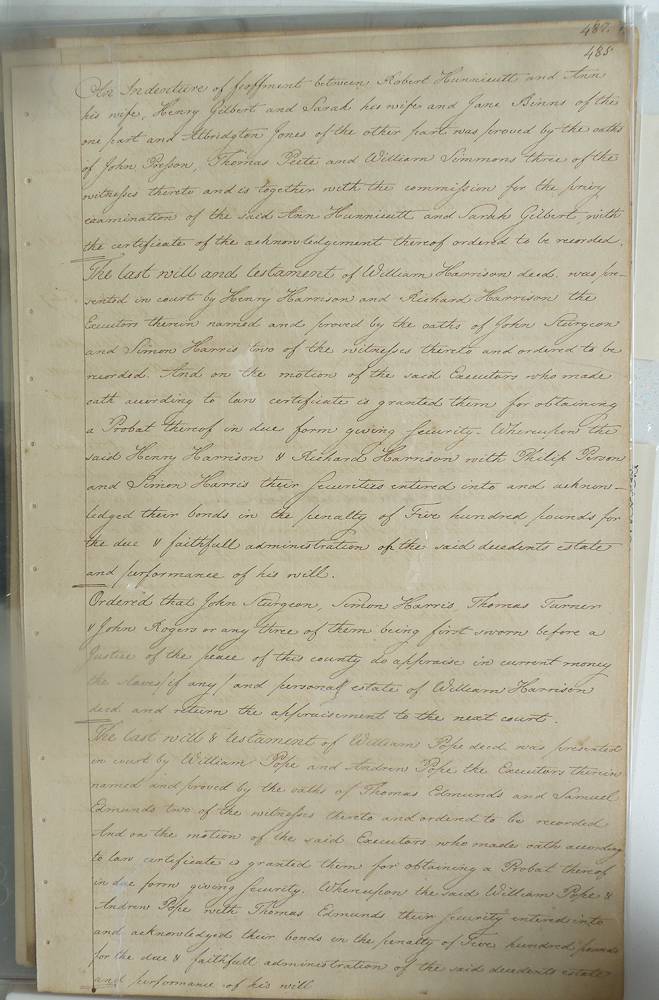 487.
485
An Indenture of feoffment between Robert Hunnicutt and Ann
his wife, Henry Gilbert and Sarah his wife and Jane Binns of the
one part and Albridgton Jones of the other part was proved by the oaths
of John Presson, Thomas Peete and William Simmons three of the
witnesses thereto and is together with the commission for the privy
examination of the said Ann Hunnicutt and Sarah Gilbert with
the certificate of the acknowledgement thereof ordered to be recorded.
The last will and testament of William Harrison decd. was pre-
sented in court by Henry Harrison and Richard Harrison the
Executors therein named and proved by the oaths of John Sturgeon
and Simon Harris two of the witnesses thereto and ordered to be
recorded. And on the motion of the said Executors who made
oath according to law certificate is granted them for obtaining
a Probat thereof in due form giving security. Whereupon the
said Henry Harrison & Richard Harrison with Philip Person
and Simon Harris their securities entered into and acknow-
ledged their bonds in the penalty of Five hundred pounds for
the due & faithfull administration of the said decedents estate
and performance of his will.
Ordered that John Sturgeon, Simon Harris, Thomas Turner
& John Rogers or any three of them being first sworn before a
Justice of the peace of this county do appraise in current money
the slaves /if any/ and personal estate of William Harrison
decd. and return the appraisement to the next court.
The last will & testament of William Pope decd. was presented
in court by William Pope and Andrew Pope the Executors therein
named and proved by the oaths of Thomas Edmunds and Samuel
Edmunds two of the witnesses thereto and ordered to be recorded
And on the motion of the said Executors who made oath according
to law certificate is granted them for obtaining a Probat thereof
in due form giving security. Whereupon the said William Pope &
Andrew Pope with Thomas Edmunds their security entered into
and acknowledged their bonds in the penalty of Five hundred pounds
for the due & faithfull administration of the said decedents estate
and performance of his will